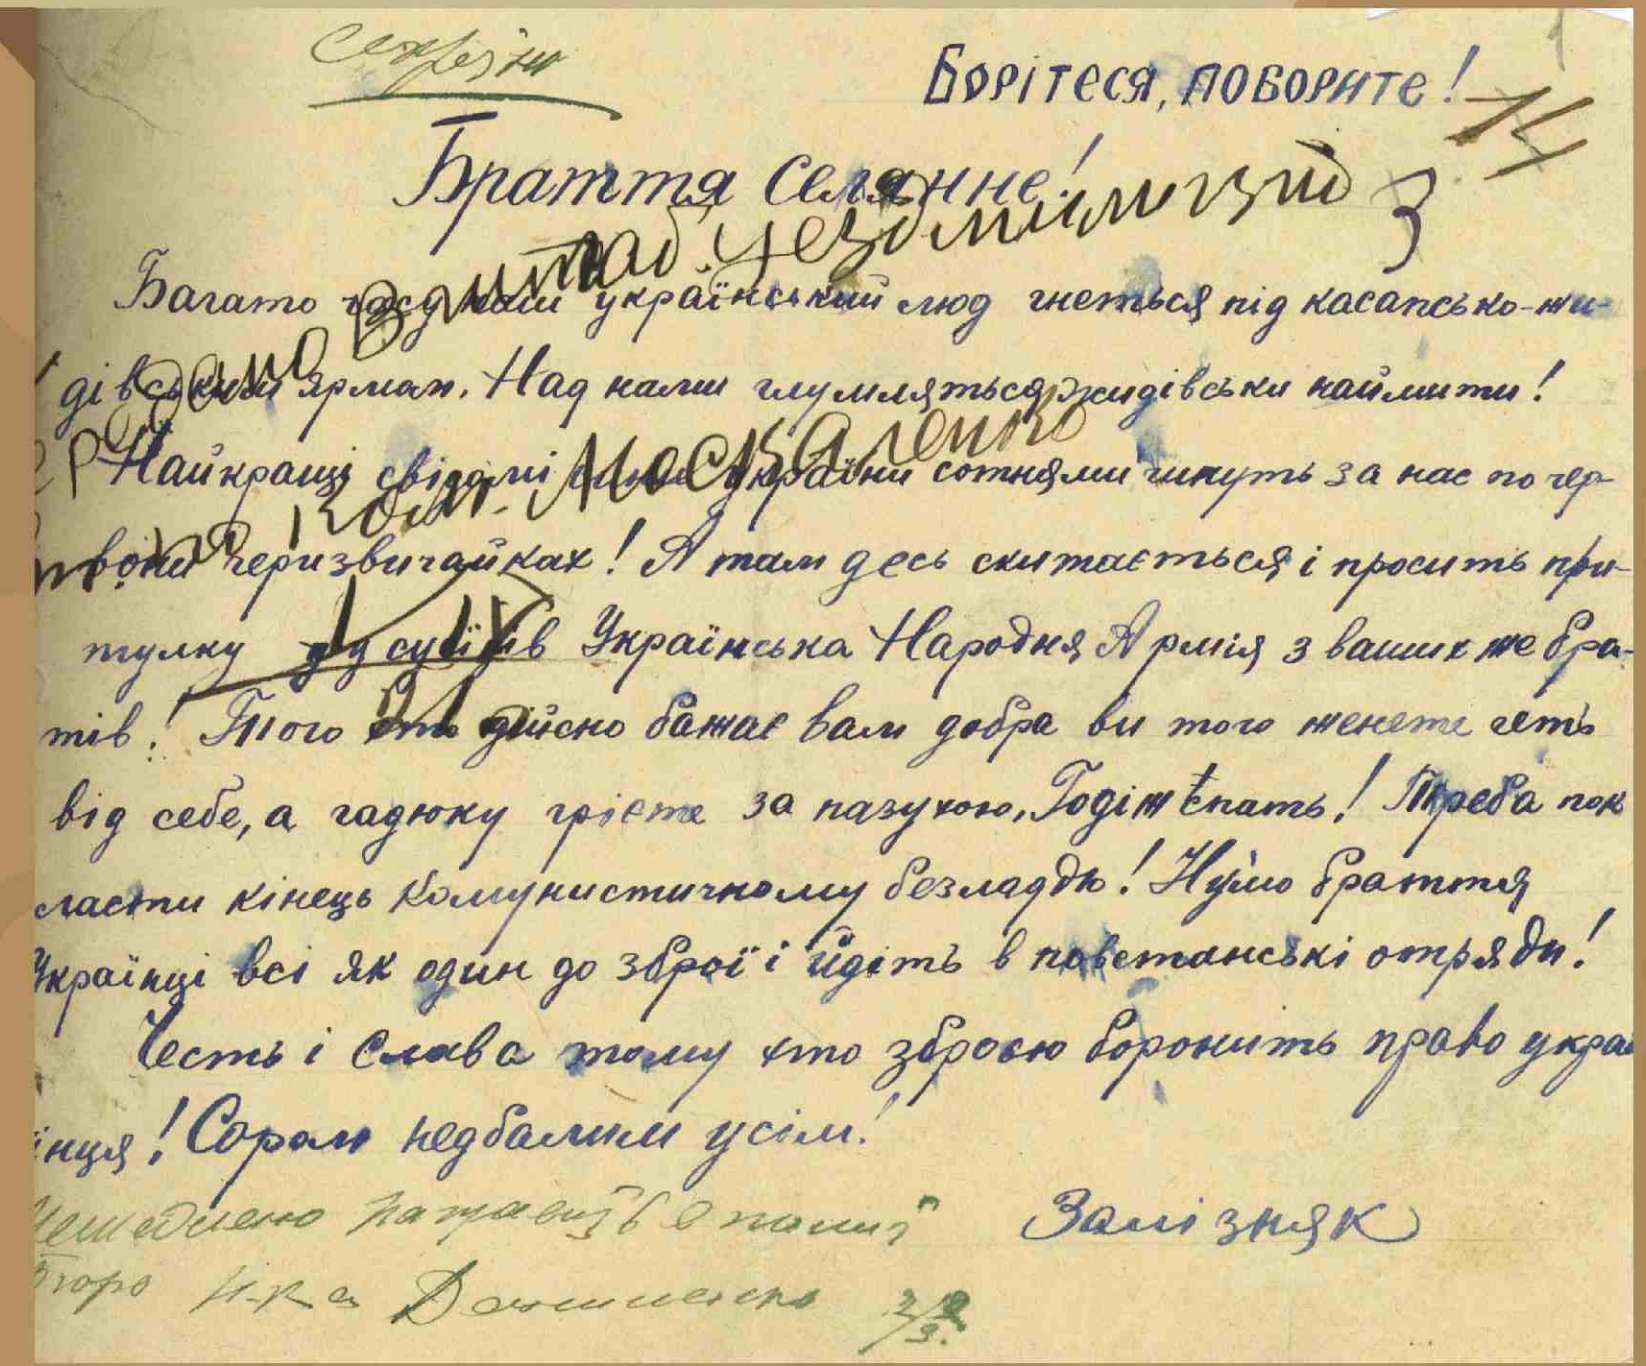 Борітеся, поборите!
Браття Селянне!
Багато часу наш український люд гнеться під касапсько-жи-
дівським ярмам. Над нами глумляться жидівськи наймити!
Найкращі свідомі сини України сотнями гинуть за нас по чер-
вони черизвичайках! А там десь скитається і просить при-
тулку у сусідів Українська Народня Армія з ваших же бра-
тів! Того хто дійсно бажає вам добра ви того женете геть
від себе, а гадюку грієте за пазухою. Годі ж спать! Треба пок
ласти кінець Комунистичному безладдю! Нумо браття
Українці всі як один до зброї і йдіть в повстанські отряди!
Честь і Слава тому хто зброєю боронить право украї
їнця! Сором недбалим усім!
Залізняк